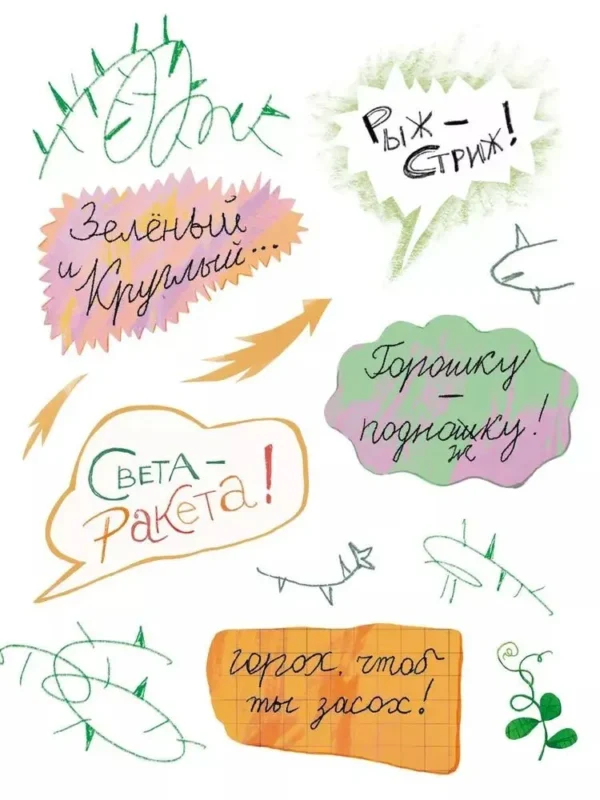 Рыж –
Стриж!
Зелёный
и Круглый...
Горошку
–
подношку!
ж
Света –
Ракета!
горох, чтоб
ты засох!